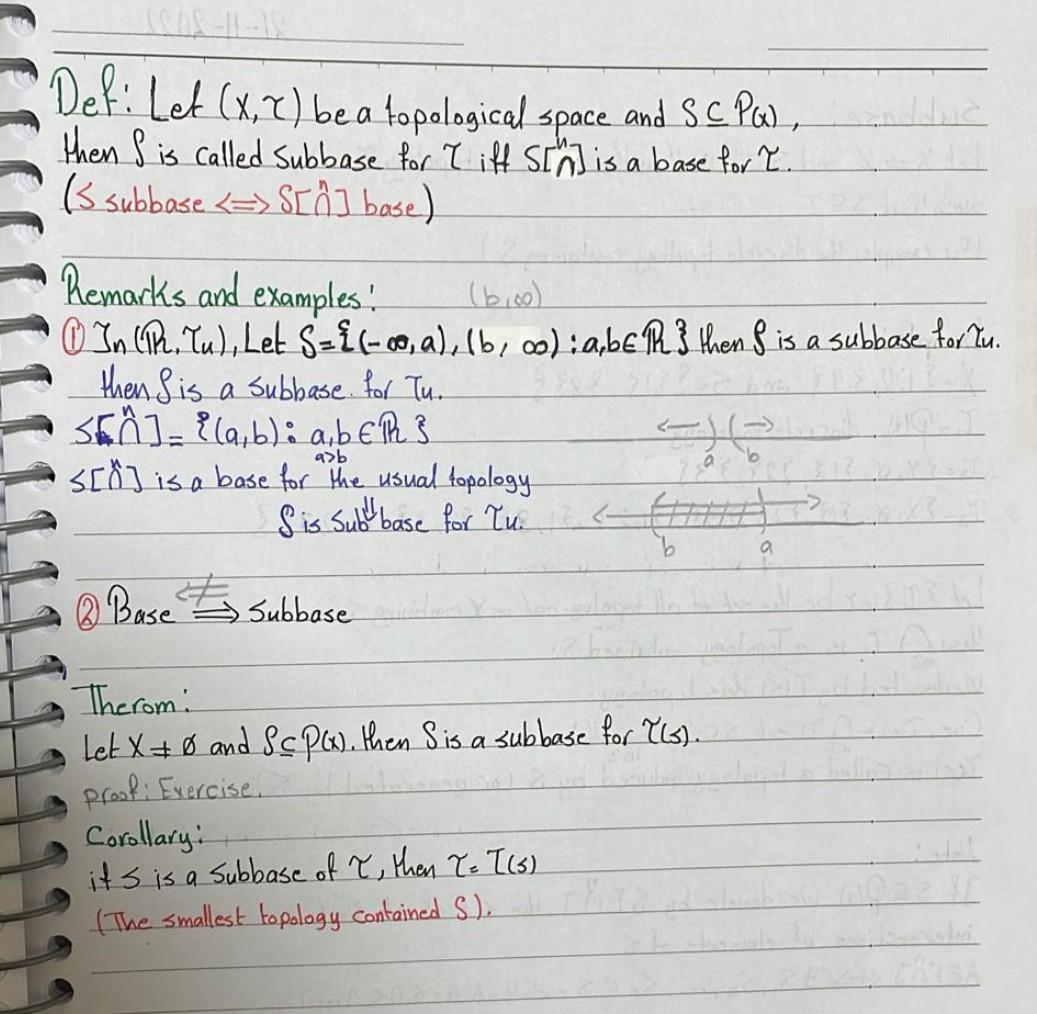 Def: Let (X, τ) be a topological space and S ⊆ P(x),
then S is called Subbase for τ iff S[∩ⁿ] is a base for τ.
(S subbase <=> S[∩ⁿ] base)
Remarks and examples: (b,∞)
① In (ℝ, τu), Let S={(-∞,a), (b, ∞) : a,b∈ℝ} then S is a subbase for τu.
then S is a subbase for τu.
S[∩ⁿ] = {(a,b): a,b ∈ ℝ}
a>b
a b
S[∩ⁿ] is a base for the usual topology
⇓
S is Subbase for τu.
b a
② Base ⇍ ⟹ Subbase
Therom:
Let X ≠ ø and S⊆P(x). then S is a subbase for τ(s).
proof: Exercise.
Corollary:
if S is a subbase of τ, then τ = τ(s)
(The smallest topology contained S).